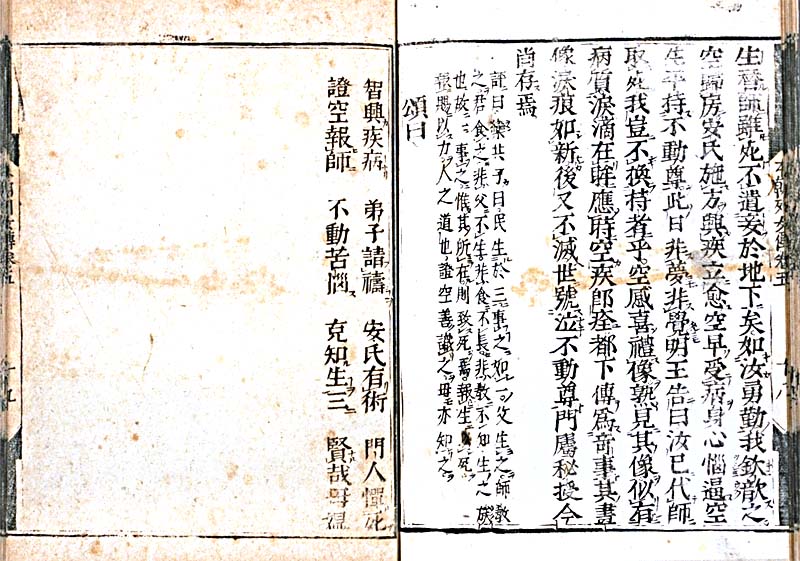 生替師雖死不遺妾於地下矣如汝勇勤我欽歆之
空歸房安氏施方興疾立愈空早受病身心惱逼空
生平持不動尊此日非夢非覺明王告曰汝已代師
取死我豈不換持者乎空感喜禮像熟見其像似有
病質淚滴在眶應時空疾即痊都下傳爲奇事其畫
像淚痕如新後又不滅世號泣不動尊門屬秘授今
尚存焉
評曰欒共子曰民生於三事之如一父生之師教
之君食之非父不生非食不長非教不知生之族
也故一事之惟其所在則致死焉報生以死
報賜以力人之道也證空善識之母亦知之
頌曰
智興疾病 弟子請禱 安氏有術 門人憚死
證空報師 不動苦惱 克知生三 賢哉母